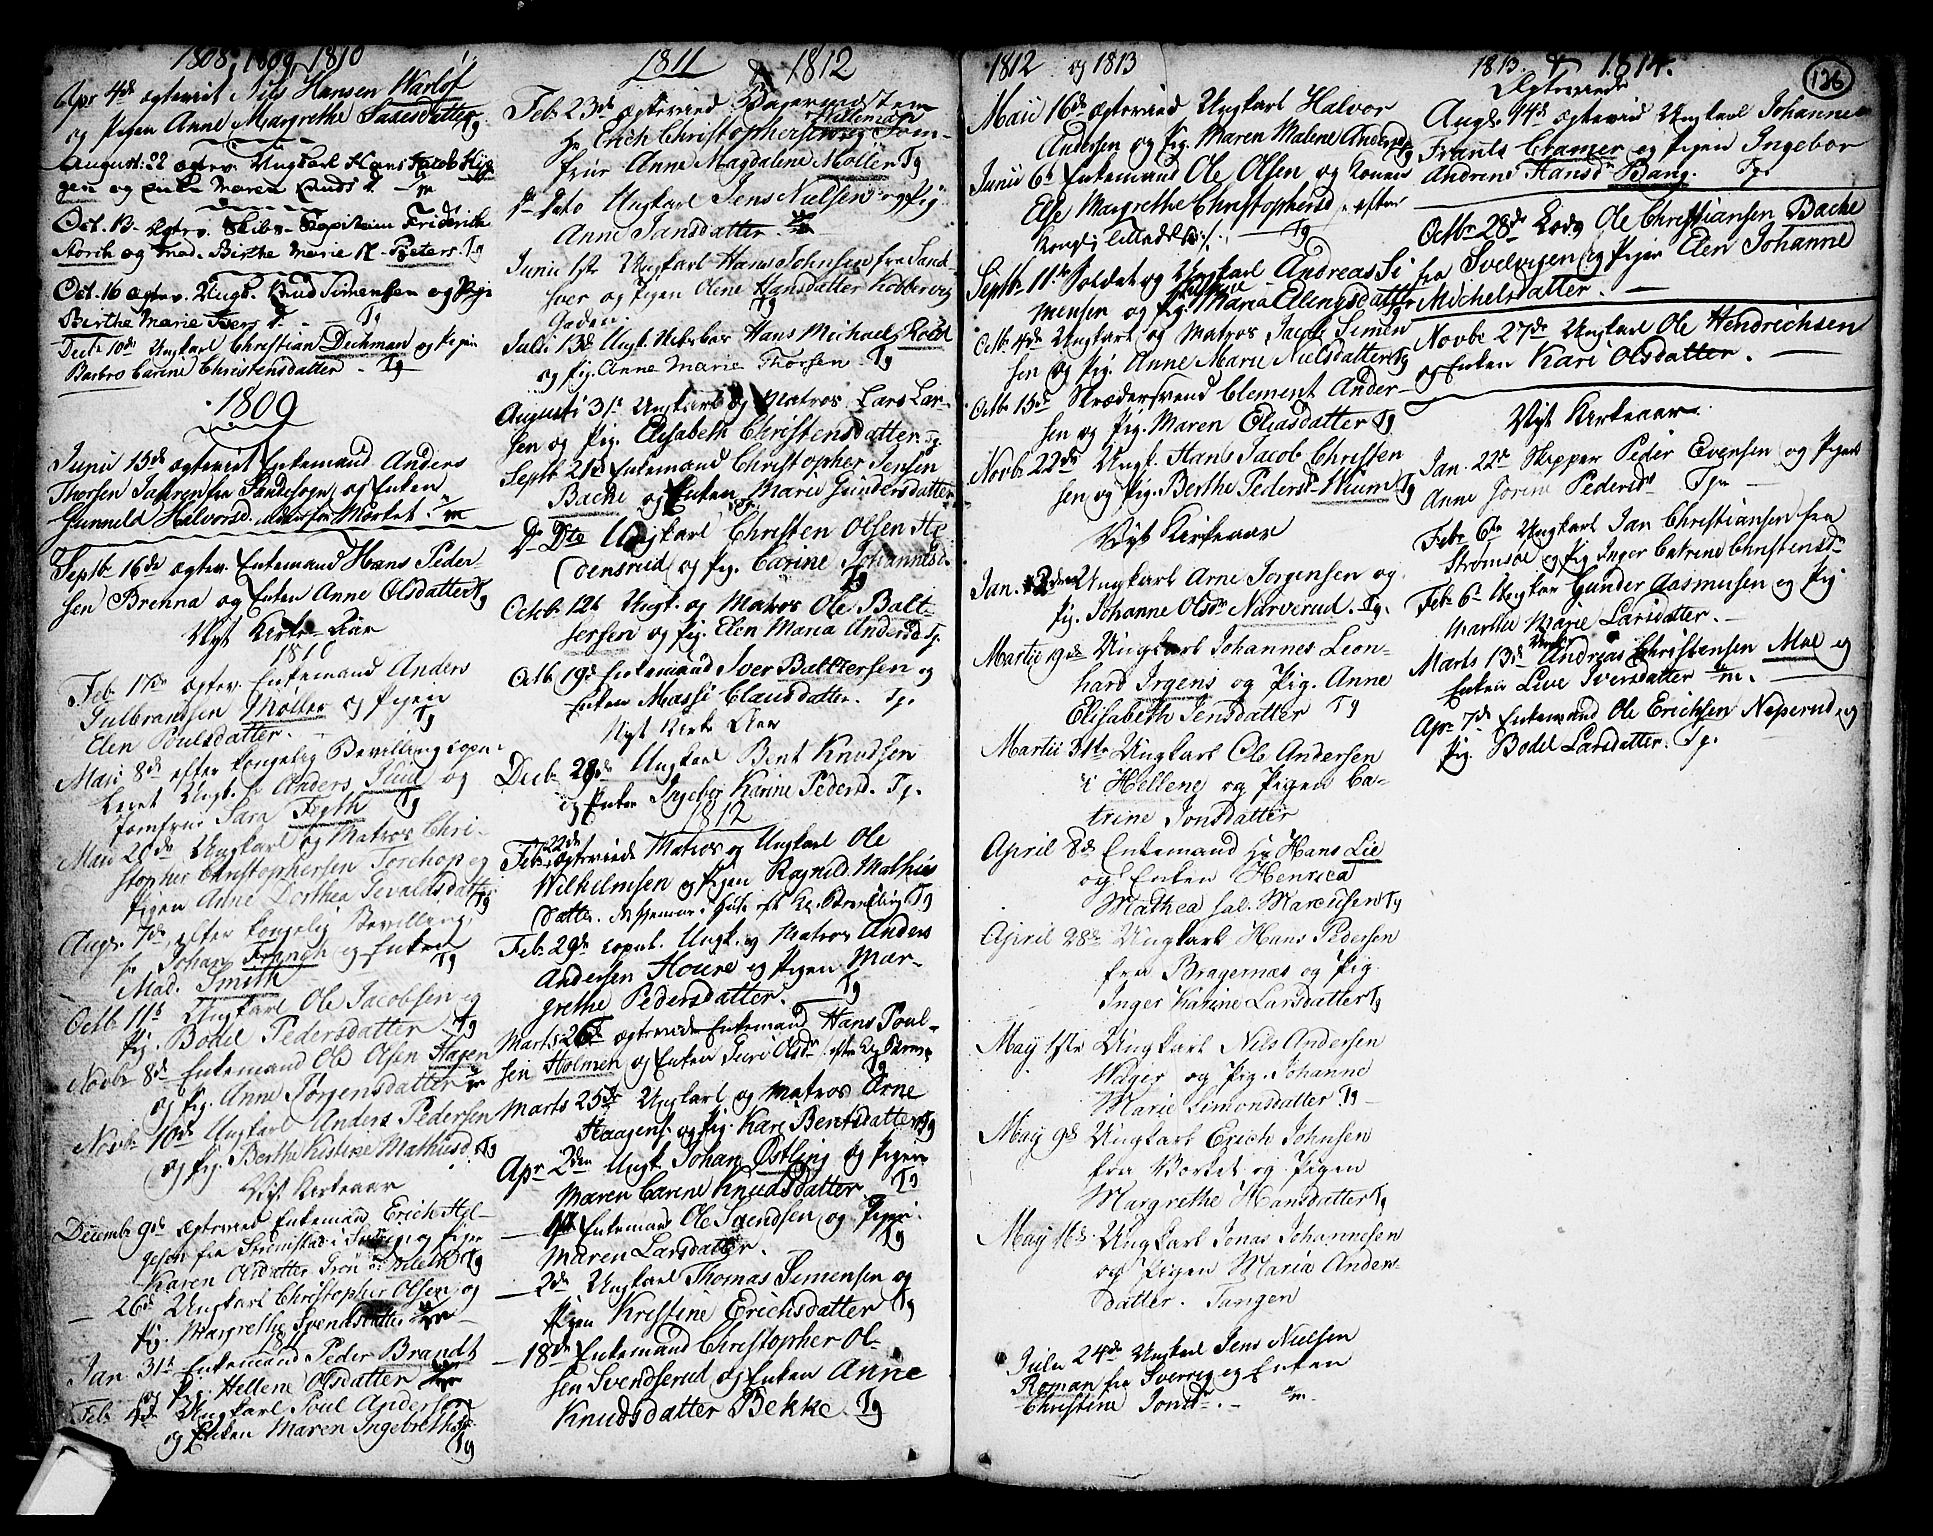 1808, 1809, 1810
Apr 4de ægteviet Nils Hansen Warlof
og Pigen Anne Margrethe Saxesdatter Tg
August 22 ægtev. Ungkarl Hans Jacob
gen og Enke Maren Knuds d.
Oct. 13 Ægtev. Skibs-Kapitein Friderich
Storch og Mad. Birthe Marie Peters. Tg
Oct. 16 ægtev. Ungk. Knud Simensen og Pige
Berthe Marie Ivers d. Tg
Decb 10de Ungkarl Christian Dichman og Pigen
Barbro Carine Christensdatter - Tg
1809
Junii 15de ægteviet Enkemand Anders
Thorsen fra Sandesogn og Enken
Gunneld Halvorsd.
Septb 16de ægtev. Enkemand Hans Peder-
sen Brenna og Enken Anne Olsdatter Tg
Nyt Kirke-Aar
1810
Feb. 17de ægtev. Enkemand Anders
Gulbrandsen Møller og Pigen
Elen Poulsdatter. Tg
Maii 8de efter kongelig Bevilling copu-
leret Ungk. Hr Anders og
Jomfrue Sara Feyth Tg
Maii 20de Ungkarl og Matros Chri-
stopher Christophersen Torchop og
Pigen Anne Dorthea Tg
Augs. 7de, efter kongelig Bevilling,
Hr Johan French og Enken
Mad. Smith Tg
Octb 11te Ungkarl Ole Jacobsen og
Pig. Bodel Pedersdatter Tg
Novbr 8de Enkemand Ole Olsen Hagen
og Pig. Anne Jørgensdatter
Novbr 10de Ungkarl Anders Pedersen
og Pig. Berthe Kistine Mathiisd. Tg
Nyt Kirkeaar
Decembr 9de Ægtevied Enkemand Erich Hel-
gesen fra Strømstad i Sverrig og Pigen
Karen Olsdatter Tg
- 26de Ungkarl Christopher Olsen og
Pig. Margrethe Svendsdatter
1811
Jan 31te Enkemand Peder Brandt
og Pig. Hellene Olsdatter
Feb. 4de Ungkarl Poul Andersen
og Enken Maren Ingebrethsd. Tg
1811 & 1812
Feb. 23de ægteviede Bagermester
Hr Erich Christophersen og Jom-
frue Anne Magdalene Møller Tg
d. dato Ungkarl Jens Nielsen og Pig.
Anne Jansdatter.
Junii 1ste Ungkarl Hans Johnsen fra Sand-
svær og Pigen Olene Hansdatter Kobbervig
Gaden. Tg
Julii 13de Ungk. Hans Michael Kold
og Pig. Anne Marie Thorsen Tg
Augusti 31te Ungkarl og Matros Lars Lar-
sen og Pig. Elisabeth Christensdatter. Tg.
Septb. 21de Enkemand Christopher Jensen
Bache og Enken Marie Gundersdatter
D. Dto Ungkarl Christen Olsen
densrud og Pig. Carine Johannesd. Tg
Octob. 12te Ungk. og Matros Ole Balt-
sersen og Pig. Elen Maria Andersd Tg.
Octb. 19de Enkemand Iver Baltzersen og
Enken Massi Clausdatter. Tg.
Nyt Kirke Aar
Decb. 28de Ungkarl Bent Knudsen
og Enken Ingebor Karine Pedersd. Tg.
1812
Feb. 22de ægteviede Matros og Ungkarl Ole
Wilhelmsen og Pigen Ragnild Mathiis
Datter. Hjemme i Huset eft. Kg. Bevelling Tg
Feb. 29de copul. Ungk. og Matros Anders
Andersen Houre og Pigen Mar-
grethe Pedersdatter. Tg
Marts 26de ægteviede Enkemand Hans Poul-
sen Holmen og Enken Siri Olsdr Tg
Marts 25de Ungkarl og Matros Arne
Haagens. og Pig. Kari Bentsdatter Tg
Apr 2den Ungk. Johan Østling og Pigen
Maren Carine Knudsdatter Tg
- Enkemand Ole Svendsen og Pigen.
Maren Larsdatter. Tg
- 2de Ungkarl Thomas Simensen og
Pigen Kristine Erichsdatter Tg
- 18de Enkemand Christopher Ol-
sen Svendserud og Enken Anne
Knudsdatter Bekke. Tg
1812 og 1813
Maii 16de ægteviede Ungkarl Halvor
Andersen og Pig. Maren Malene Andersd Tg
Junii 6te Enkemand Ole Olsen og Konen
Else Margrethe Christophersd. efter
Kongl. Tg
Septb. 11te Soldat og Ungkarl Andreas Si
mensen og Pig. Maria Ellingsdatter Tg
Octb. 4de Ungkarl og Matros Jacob Simen
sen og Pig. Anne Marie Nielsdatter Tg
Octb 15de Skrædersvend Clement Ander-
sen og Pig. Maren Eliasdatter Tg
Novb. 22de Ungk. Hans Jacob Christen
sen og Pig. Berthe Pedersd. Wium Tg
Nyt Kirkeaar
Jan. 2den Ungkarl Arne Jørgensen og
Pig. Johanne Olsdr Narverud. Tg.
Martii 19de Ungkarl Johannes Leon-
hard Irgens og Pig. Anne
Elisabeth Jensdatter Tg
Martii 31te Ungkarl Ole Andersen
i Hellene og Pigen Ca-
trine Jonsdatter
April 8de Enkemand Hr Hans Lie
og Enken Henrica
Mathea sal. Marcusen Tg
April 28de Ungkarl Hans Pedersen
fra Bragernæs og Pig.
Inger Karine Larsdatter Tg
May 1ste Ungkarl Nils Andersen
Wager og Pig. Johanne
Marie Simonsdatter Tg -
May 9de Ungkarl Erich Johnsen
fra Børket og Pigen
Margrethe Hansdatter Tg
May 16de Ungkarl Jonas Johannesen
og Pigen Maria Anders-
datter. Tangen
Julii 24de Ungkarl Jens Nielsen
Roman fra Sverrig og Enken
Christine Jonsdr. -
1813 & 1814.
136
Ægteviede
Augs. 14de ægteviede Ungkarl Johannes
Frants Cramer og Pigen Ingebor
Andrine Hansdr Bang. Tg.
Octbr 28de Lods Ole Christiansen Bache
fra Svelvigen og Pigen Elen Johanne
Michelsdatter. -
Novbr 27de Ungkarl Ole Hendrichsen
og Enken Kari Olsdatter. -
Nyt Kirkeaar.
Jan. 22de Skipper Peder Evensen og Pigen
Anne Jorine Pedersdr Tg. -
Febr 6te Ungkarl Jan Christiansen fra
Strømsøe og Pig Inger Catrine Christensdr
Febr 6te Ungkar Gunder Aasmusen og Pig
Marthe Marie Larsdatter. -
Marts 13de Ungkarl Andreas Christensen Moe og
Enken Live Iversdatter
Apr. 7de Enkemand Ole Erichsen Neperud og
Pig. Bodel Larsdatter. Tg.